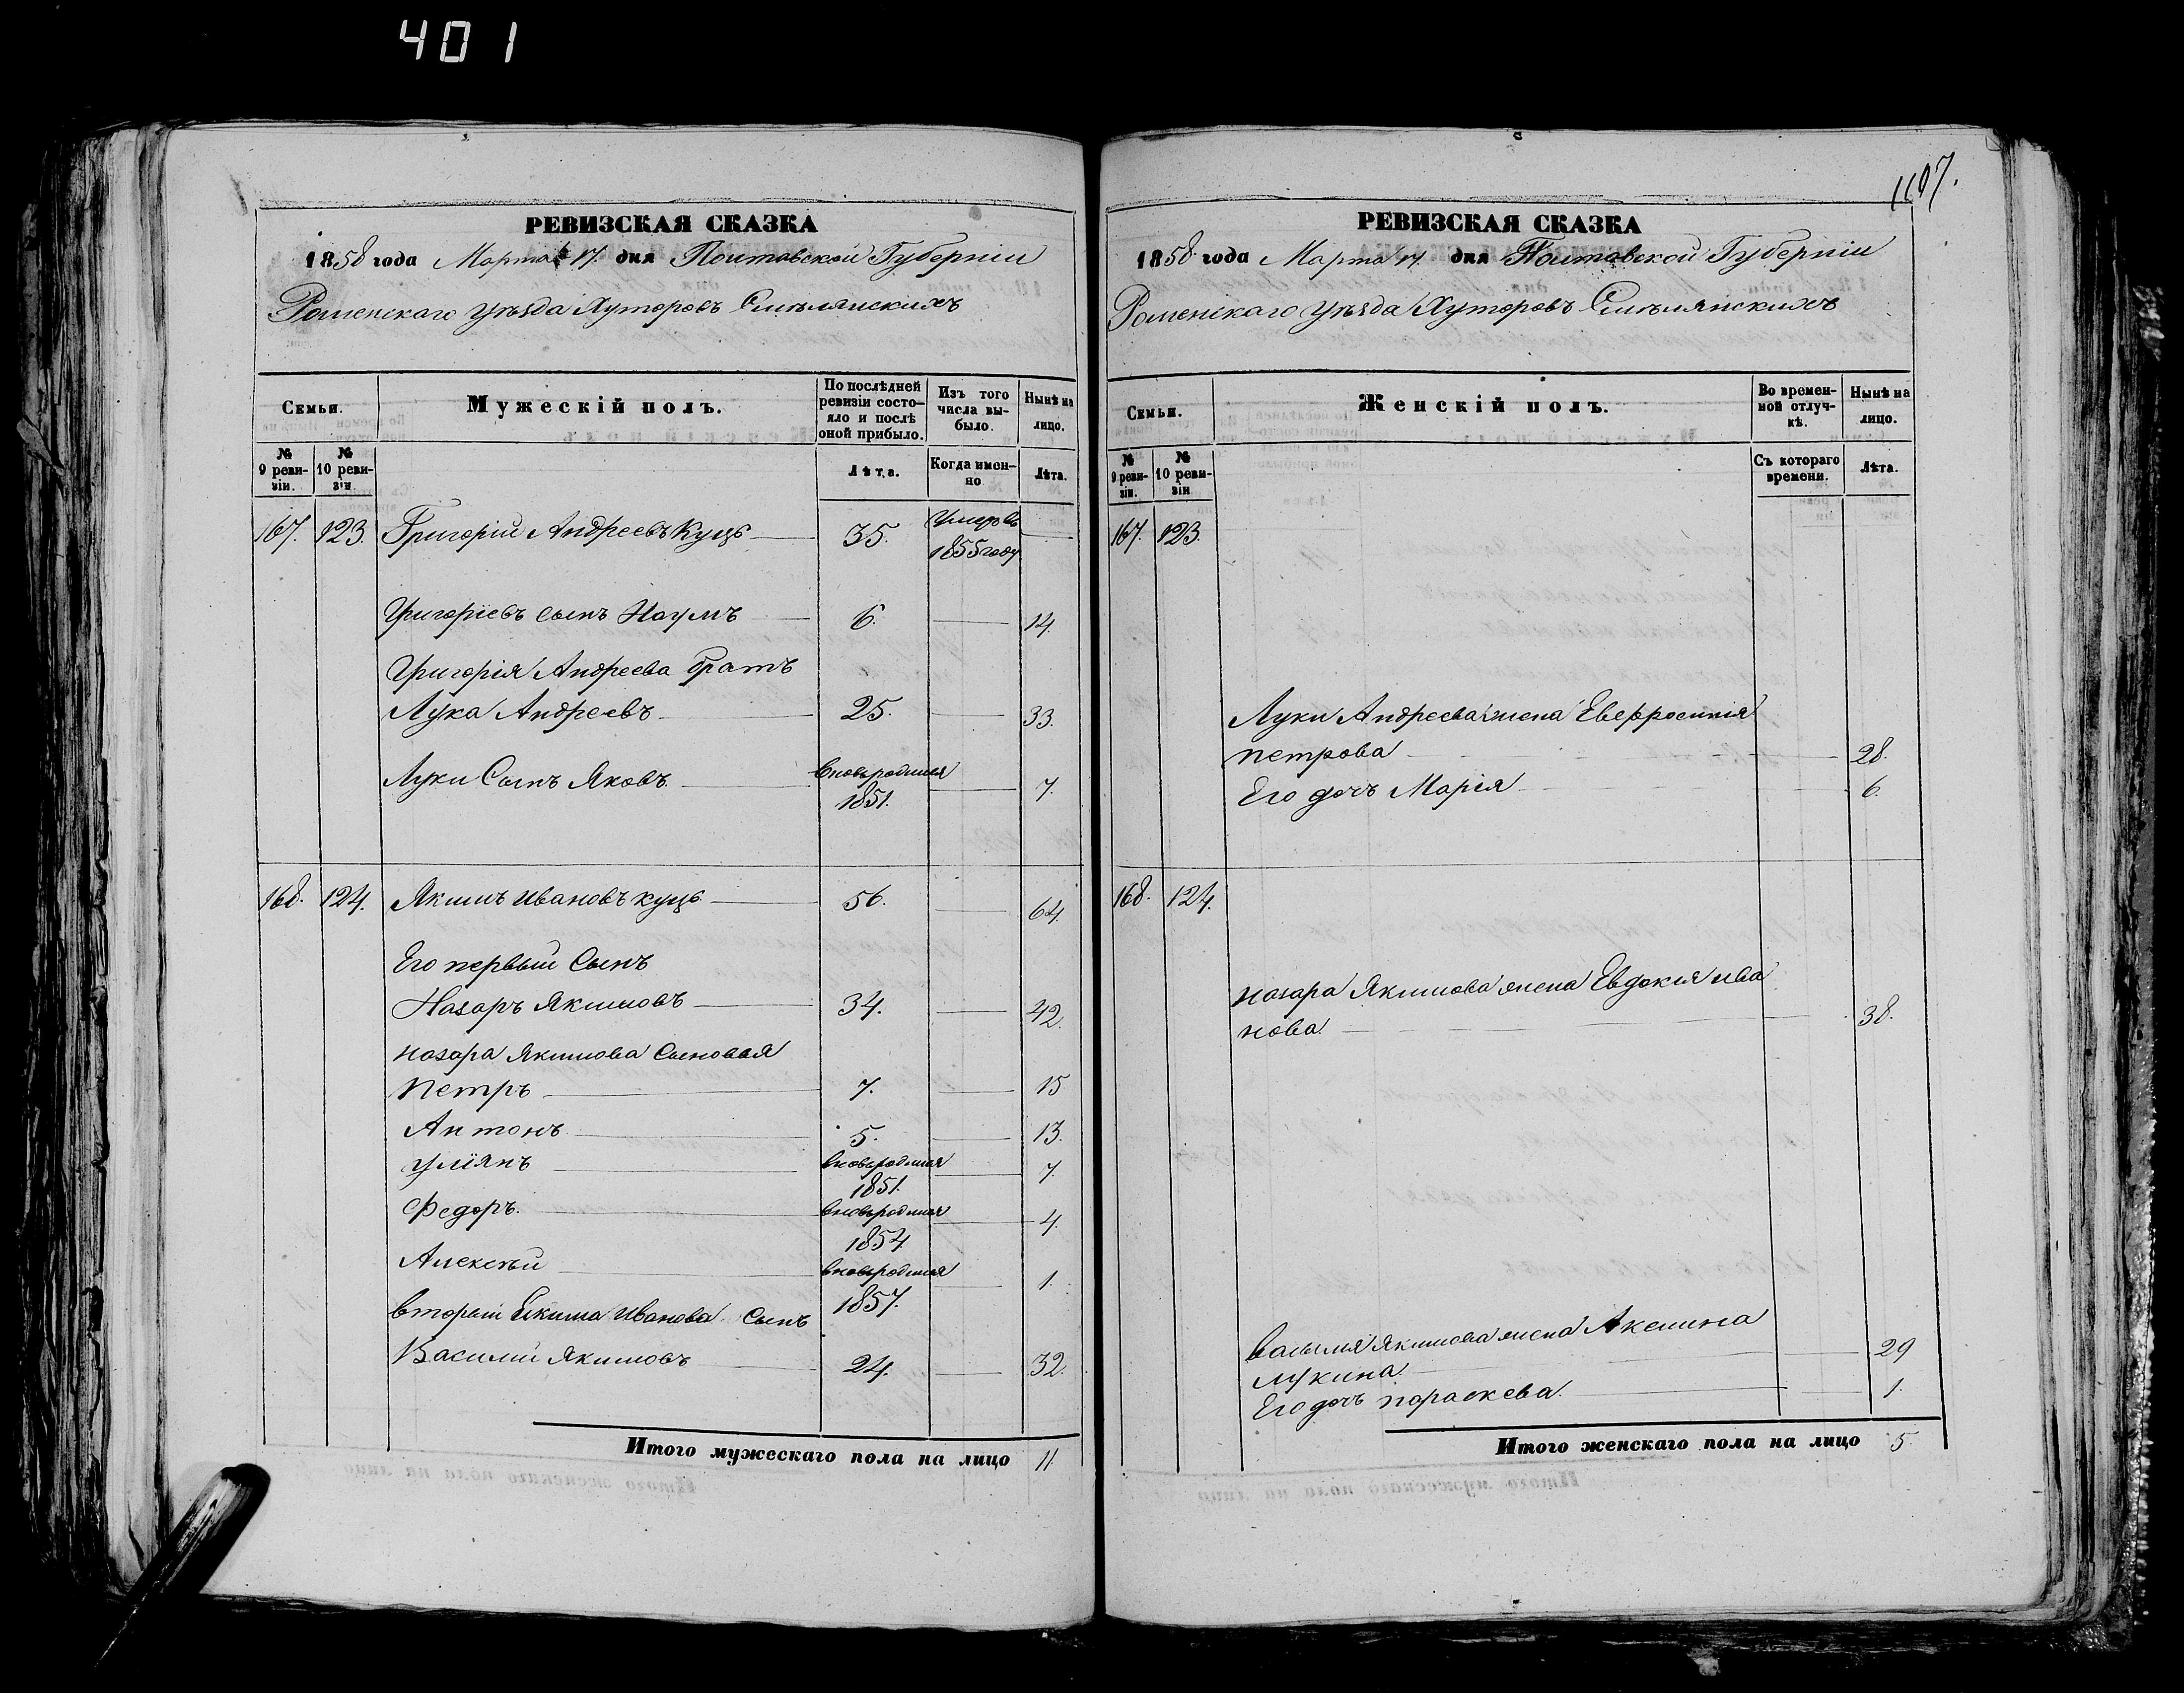 401
РЕВИЗСКАЯ СКАЗКА
1858 года Марта 17. дня Полтавской Губерніи
Роменскаго уѣзда Хуторовъ Смѣлянскихъ
Семьи.
Мужескій полъ.
По послѣдней ревизіи состояло и послѣ оной прибыло.
Изъ того числа выбыло.
Нынѣ на лицо.
№ 9 ревизіи.
№ 10 ревизіи.
Лѣта.
Когда именно
Лѣта.
167. 123. Григорій Андреевъ Куць 35. Умеръ въ 1855 году
Григоріевъ сынъ Наумъ 6. 14.
Григорія Андреева братъ
Лука Андреевъ 25. 33.
Луки Сынъ Яковъ. вновьродился 1851. 7.
168. 124. Якимъ Ивановъ куць 56. 64.
Его первый Сынъ
Назаръ Якимовъ 34. 42.
назара Якимова Сыновья
Петръ 7. 15
Антонъ 5. 13.
Улiянъ вновьродился 1851. 7.
Федоръ. вновьродился 1854 4.
Алексѣй вновьродился 1857. 1.
второй Якима Иванова Сынъ
Василий Якимовъ 24. 32.
Итого мужескаго пола на лицо 11.
1107.
РЕВИЗСКАЯ СКАЗКА
1858 года Марта 17 дня Полтавской Губерніи
Роменскаго уѣзда Хуторовъ Смѣлянскихъ
Семьи.
Женскій полъ.
Во временной отлучкѣ.
Нынѣ на лицо.
№ 9 ревизіи.
№ 10 ревизіи
Съ котораго времени.
Лѣта.
167. 123.
Луки Андреева жена Евфросинія
петрова 28.
Его дочь Марія 6.
168. 124.
назара Якимова жена Евдокия ива
нова. 38.
василия Якимова жена Аксинна
лукина. 29
Его дочь параскева. 1.
Итого женскаго пола на лицо 5.